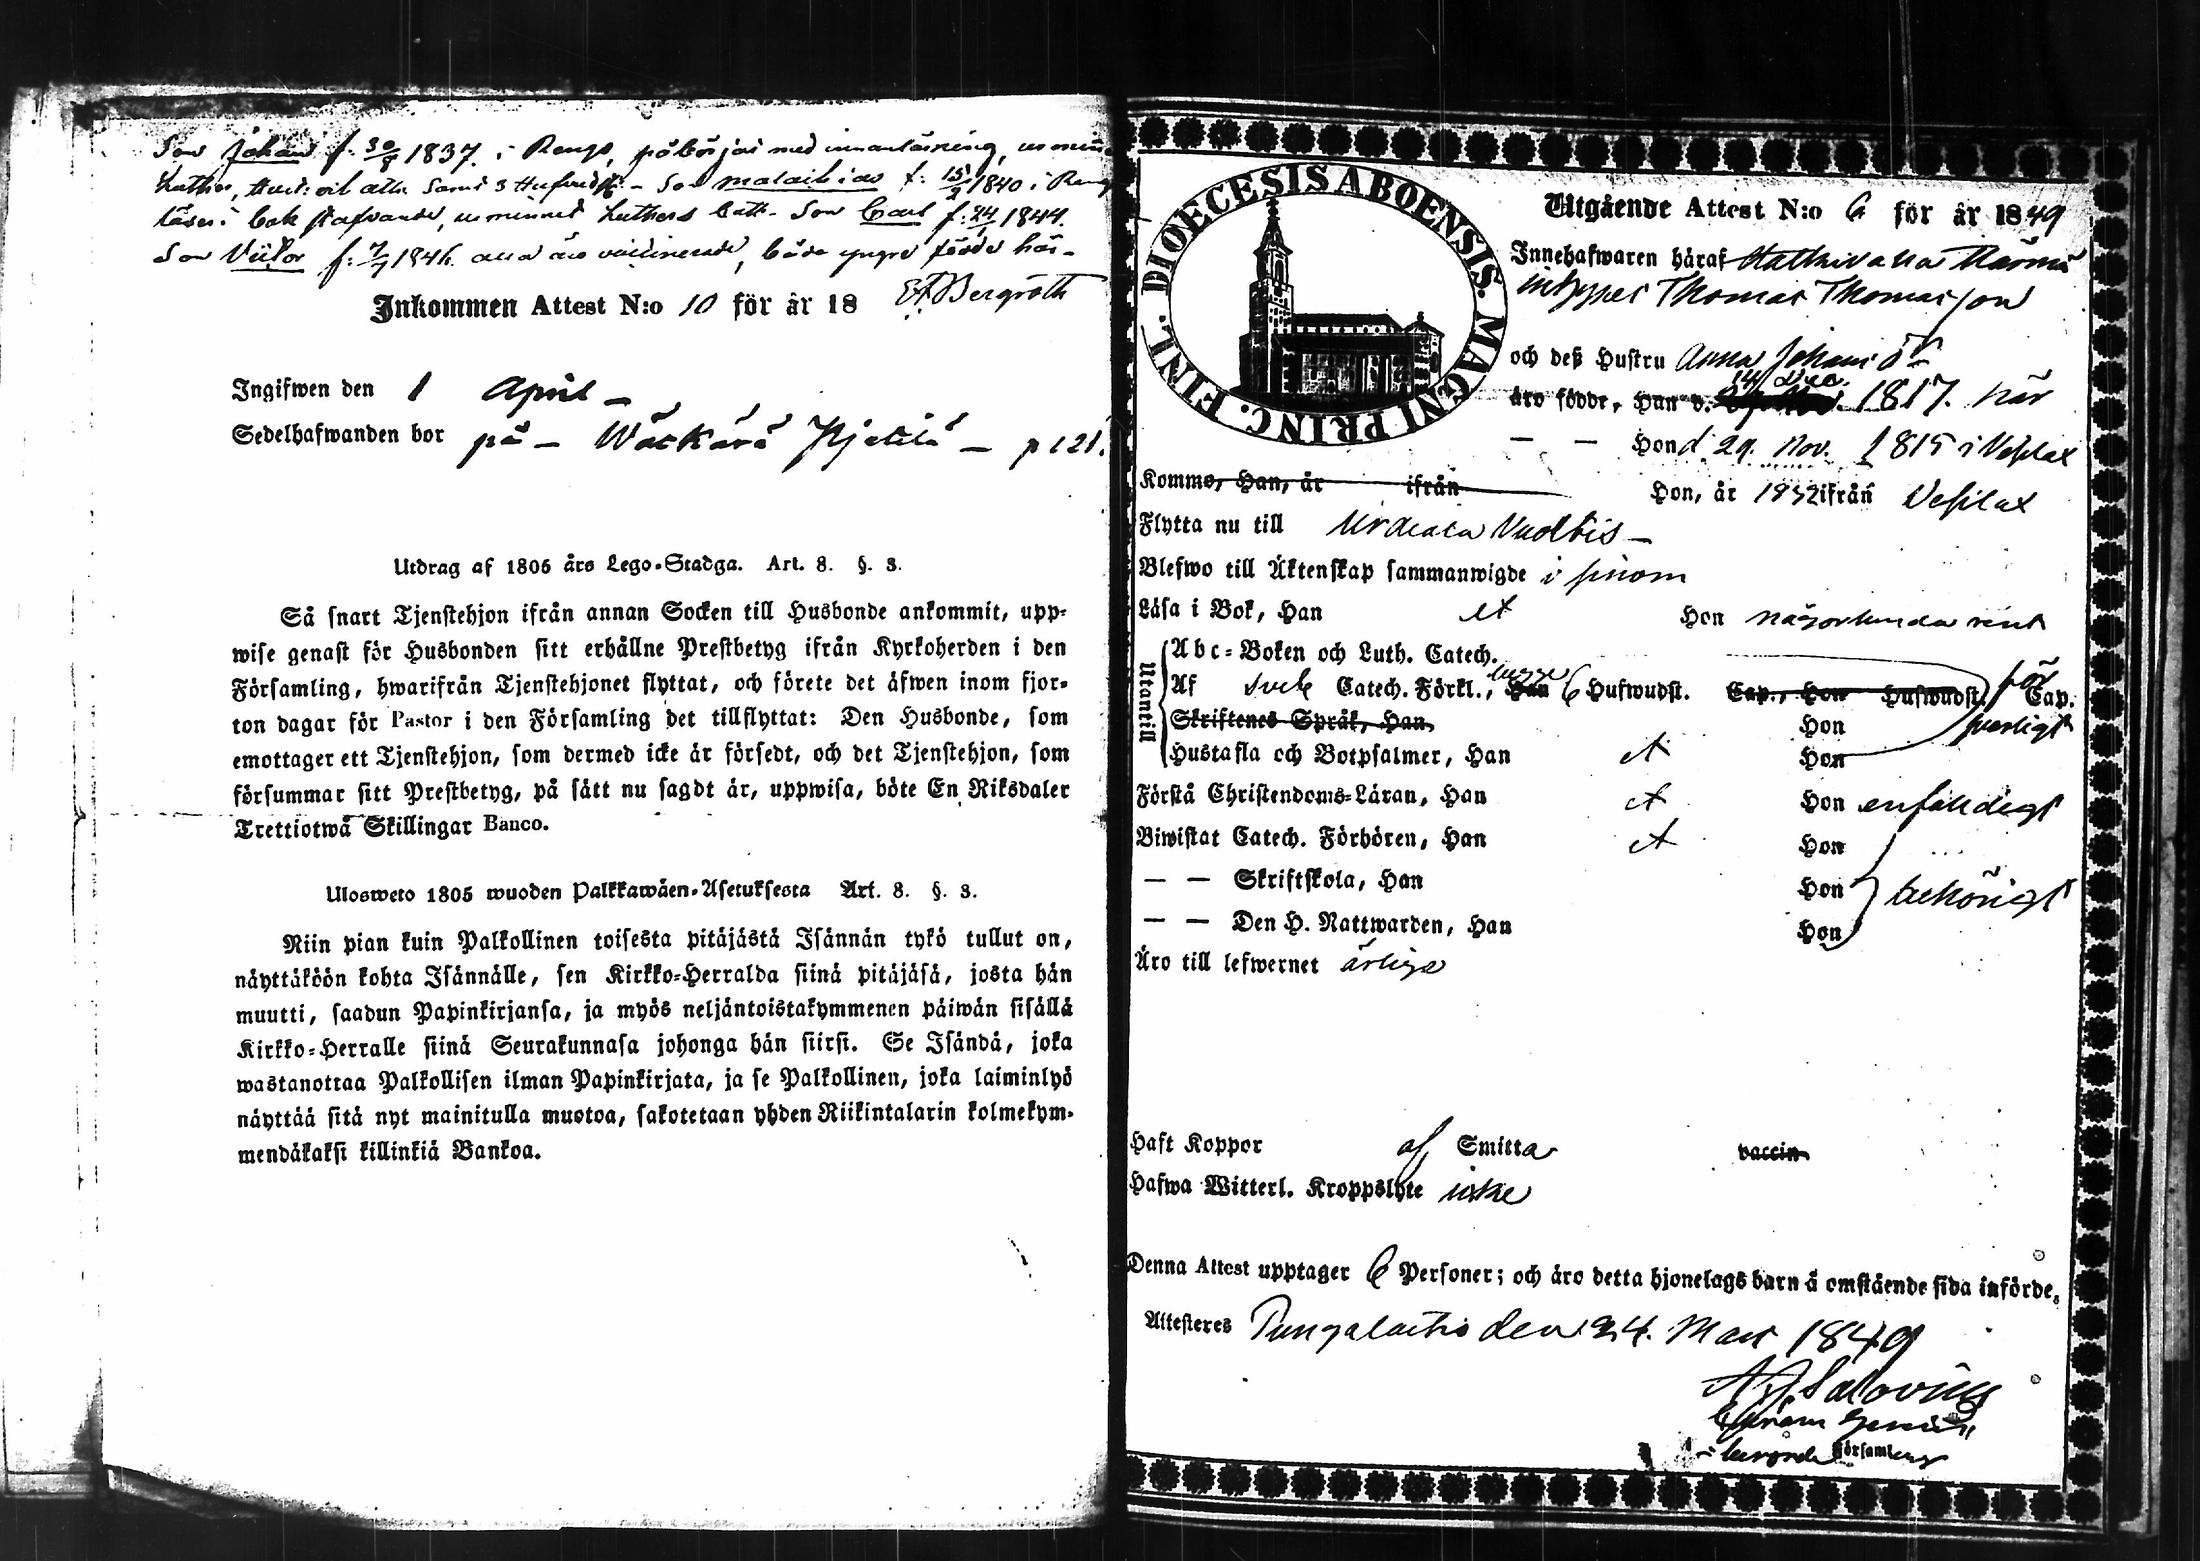 Son Johan f. 30/8 1837. i Rengo, påbörjat med innanläsning, ur minne
Luthers, Samt 3 Hufwudst. – Son Mataitias f: 15/9 1840 i Reng
läser i bok stafvande, ur minnet Luthers Cath. Son Carl f: 24/1 1844.
Son Viktor f: 7/7 1846. alla äro vaccinerade, båda yngre födde här –
Inkommen Attest N:o 10 för år 18 Bergroth
Ingifwen den 1 April –
Sedelhafwanden bor på – Wäckärä Hjelilä – p 121.
Utdrag af 1805 års Lego-Stadga. Art. 8. §. 3.
Så snart Tjenstehjon ifrån annan Socken till Husbonde ankommit, upp-
wise genast för Husbonden sitt erhållne Prestbetyg ifrån Kyrkoherden i den
Församling, hwarifrån Tjenstehjonet flyttat, och förete det äfwen inom fjor-
ton dagar för Pastor i den Församling det tillflyttat: Den Husbonde, som
emottager ett Tjenstehjon, som dermed icke är försedt, och det Tjenstehjon, som
försummar sitt Prestbetyg, på sätt nu sagdt är, uppwisa, böte En Riksdaler
Trettiotwå Skillingar Banco.
Ulosweto 1805 wuoden Palkkawäen-Asetuksesta Art. 8. §. 3.
Niin pian kuin Palkollinen toisesta pitäjästä Isännän tykö tullut on,
näyttäköön kohta Isännälle, sen Kirkko-Herralda siinä pitäjäsä, josta hän
muutti, saadun Papinkirjansa, ja myös neljäntoistakymmenen päiwän sisällä
Kirkko-Herralle siinä Seurakunnasa johonga hän siirsi. Se Isändä, joka
wastanottaa Palkollisen ilman Papinkirjata, ja se Palkollinen, joka laiminlyö
näyttää sitä nyt mainitulla muotoa, sakotetaan yhden Riikintalarin kolmekym-
mendäkaksi killinkiä Bankoa.
DIOECESIS ABOENSIS. MAGNI PRINC. FINL.
Utgående Attest N:o 6 för år 1849
Innehafwaren häraf
Thomas Thomasson
och deß Hustru Anna Johans dr
14 Dec.
äro födde, Han d. 1817. här
— — Hon d. 29. Nov. 1815 i Vesilax
Komme, Han, år ifrån Hon, år 1832 ifrån Vesilax
Flytta nu till Urdiala
Blefwo till Äktenskap sammanwigde
Läsa i Bok, Han et Hon någorlunda rent
Utantill
Abc-Boken och Luth. Catech.
Af Sveb Catech. Förkl., begge Han 6 Hufwudst. Cap., Hon Hufwudst. Cap.
för
Skriftenes Språk, Han Hon svarligt
Hustafla och Botpsalmer, Han et Hon
Förstå Christendoms-Läran, Han et Hon enfaldigt
Biwistat Catech. Förhören, Han et Hon
— — Skriftskola, Han Hon behörigt
— — Den H. Nattwarden, Han Hon
Äro till lefwernet ärliga
Haft Koppor af Smitta vaccin
Hafwa Witterl. Kroppslyte icke
Denna Attest upptager 6 Personer; och äro detta hjonelags barn å omstående sida införde,
Attesteres Pungalaitio den 24. Mars 1849
Salovius
Församling